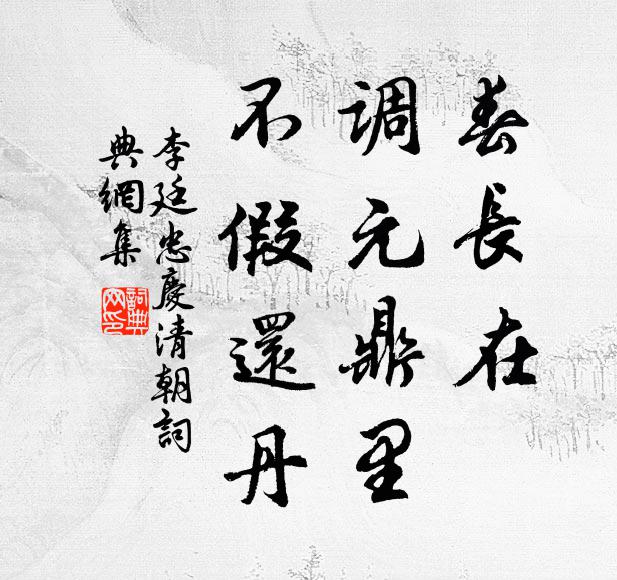 春長在
调元鼎里
不假還丹
李廷忠慶清朝詞
典網集
詞典
网印